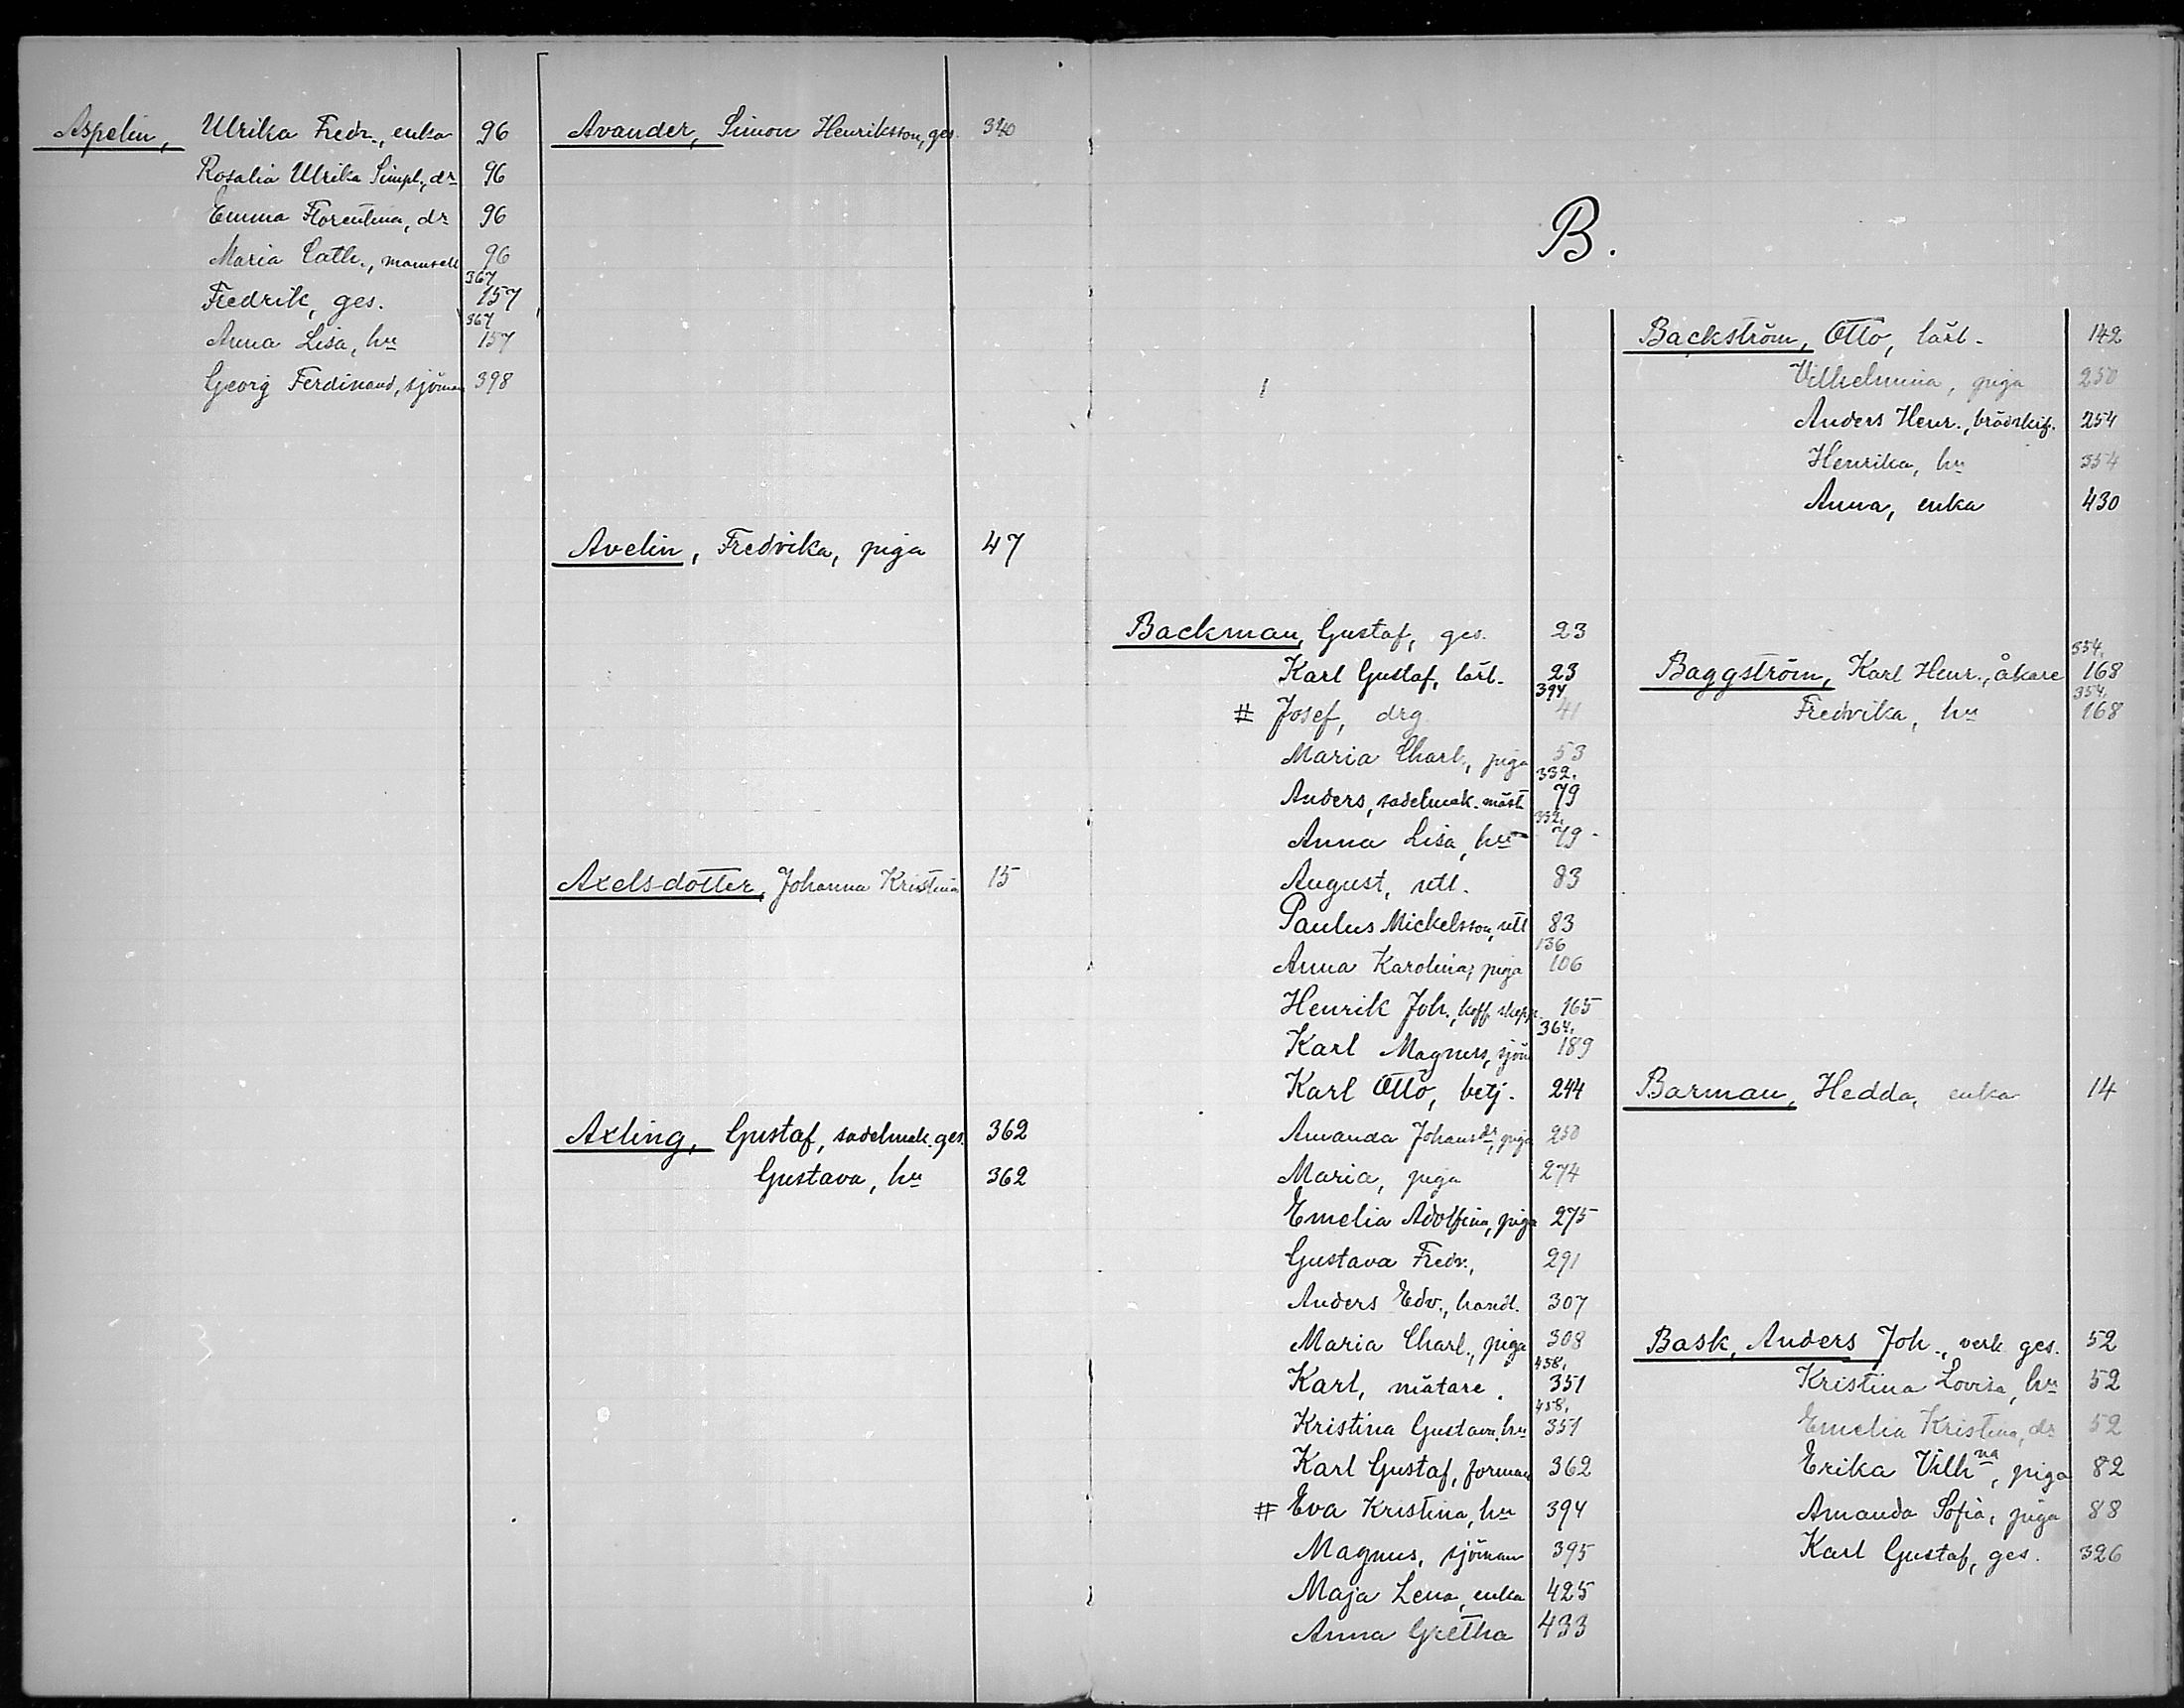 Aspelin, Ulrika Fredr., enka 96
Rosalia Ulrika Simpl., dr 96
Emma Florentina, dr 96
Maria Cath., mamsell 96
Fredrik, ges. 367 157
Anna Lisa, hu 367 157
Georg Ferdinand, sjöman 398
Avander, Simon Henriksson, ges. 340
Avelin, Fredrika, piga 47
Axels-dotter, Johanna Kristina 15
Axling, Gustaf, sadelmak. ges. 362
Gustava, hu 362
B.
Backman, Gustaf, ges. 23
Karl Gustaf, lärl. 23
# Josef, drg. 394 41
Maria Charl., piga 53
Anders, sadelmak. mäst. 332. 79
Anna Lisa, hu 332. 79
August, utl. 83
Paulus Mickelsson, utl 83
Anna Karolina, piga 136 106
Henrik Joh., koff. skepp. 165
Karl Magnus, sjöm 364. 189
Karl Otto, betj. 244
Amanda Johansdr, piga 250
Maria, piga 274
Emelia Adolfina, piga 275
Gustava Fredr., 291
Anders Edv., handl. 307
Maria Charl., piga 308
Karl, mätare. 458. 351
Kristina Gustava, hu 458. 351
Karl Gustaf, forman 362
# Eva Kristina, hu 394
Magnus, sjöman 395
Maja Lena, enka 425
Anna Gretha 433
Backström, Otto, lärl. 142
Vilhelmina, piga 250
Anders Henr., brädskif. 254
Henrika, hu 354
Anna, enka 430
Baggström, Karl Henr., åkare 354. 168
Fredrika, hu 354. 168
Barman, Hedda, enka 14
Bask, Anders Joh., verk ges. 52
Kristina Lovisa, hu 52
Emelia Kristina, dr 52
Erika Vilhna, piga 82
Amanda Sofia, piga 88
Karl Gustaf, ges. 326